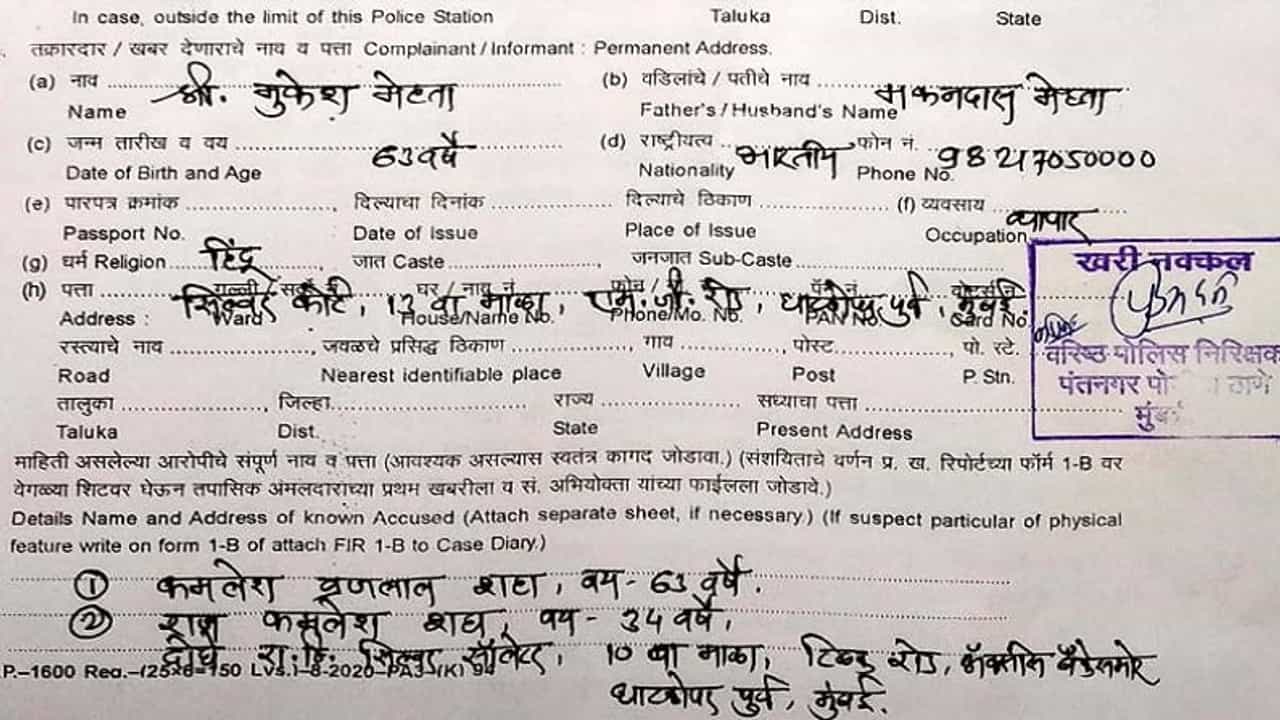 In case, outside the limit of this Police Station Taluka Dist. State
तक्रारदार / खबर देणाराचे नाव व पत्ता Complainant / Informant : Permanent Address.
(a) नाव श्री. मुकेश मेहता (b) वडिलांचे / पतीचे नाव मकनदास मेहता
Name Father's / Husband's Name
(c) जन्म तारीख व वय 63 वर्षे (d) राष्ट्रीयत्व भारतीय फोन नं. 98217050000
Date of Birth and Age Nationality Phone No.
(e) पारपत्र क्रमांक दिल्याचा दिनांक दिल्याचे ठिकाण (f) व्यवसाय व्यापार
Passport No. Date of Issue Place of Issue Occupation
(g) धर्म Religion हिंदू जात Caste जनजात Sub-Caste
खरी नक्कल
(h) पत्ता घर / नाव नं.
सिल्वर कोर्ट, 12 वा माळा, एम. जी. रोड, घाटकोपर पुर्व, मुंबई.
Address : Ward House/Name No. Phone/Mo. No. PAN No. Card No.
रस्त्याचे नाव जवळचे प्रसिद्ध ठिकाण गाव पोस्ट पो. स्टे.
वरिष्ठ पोलिस निरिक्षक
Road Nearest identifiable place Village Post P. Stn.
पंतनगर ठाणे
तालुका जिल्हा राज्य सध्याचा पत्ता
Taluka Dist. State Present Address
माहिती असलेल्या आरोपीचे संपूर्ण नाव व पत्ता (आवश्यक असल्यास स्वतंत्र कागद जोडावा.) (संशयिताचे वर्णन प्र. ख. रिपोर्टच्या फॉर्म 1-B वर
वेगळ्या शिटवर घेऊन तपासिक अंमलदाराच्या प्रथम खबरीला व सं. अभियोक्ता यांच्या फाईलला जोडावे.)
Details Name and Address of known Accused (Attach separate sheet, if necessary.) (If suspect particular of physical
feature write on form 1-B of attach FIR 1-B to Case Diary.)
① कमलेश प्राणलाल शहा, वय - 63 वर्षे.
② राज कमलेश शहा, वय - 34 वर्षे,
रा. ठि. 10 वा माळा, टिळक रोड,
घाटकोपर पुर्व, मुंबई.